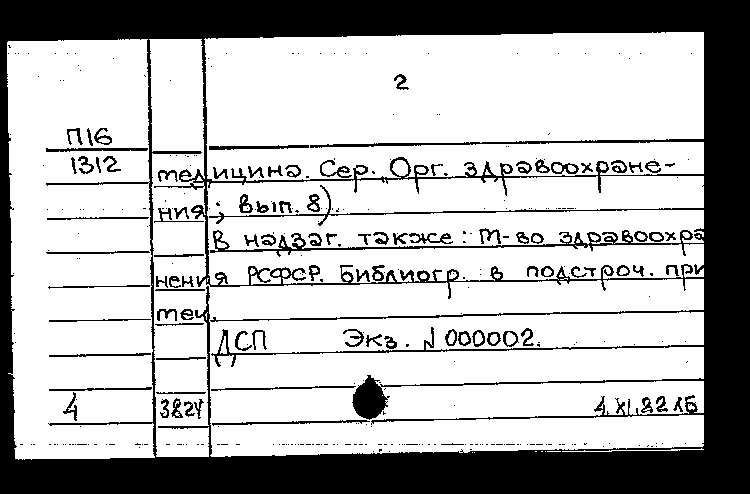 2
П16
1312
медицина. Сер. „Орг. здравоохране-
ния; вып. 8).
В надзаг. также: М-во здравоохра
нения РСФСР. Библиогр. в подстроч. при
меч.
ДСП Экз. №000002.
4 382У 4.XI.82 ЛБ